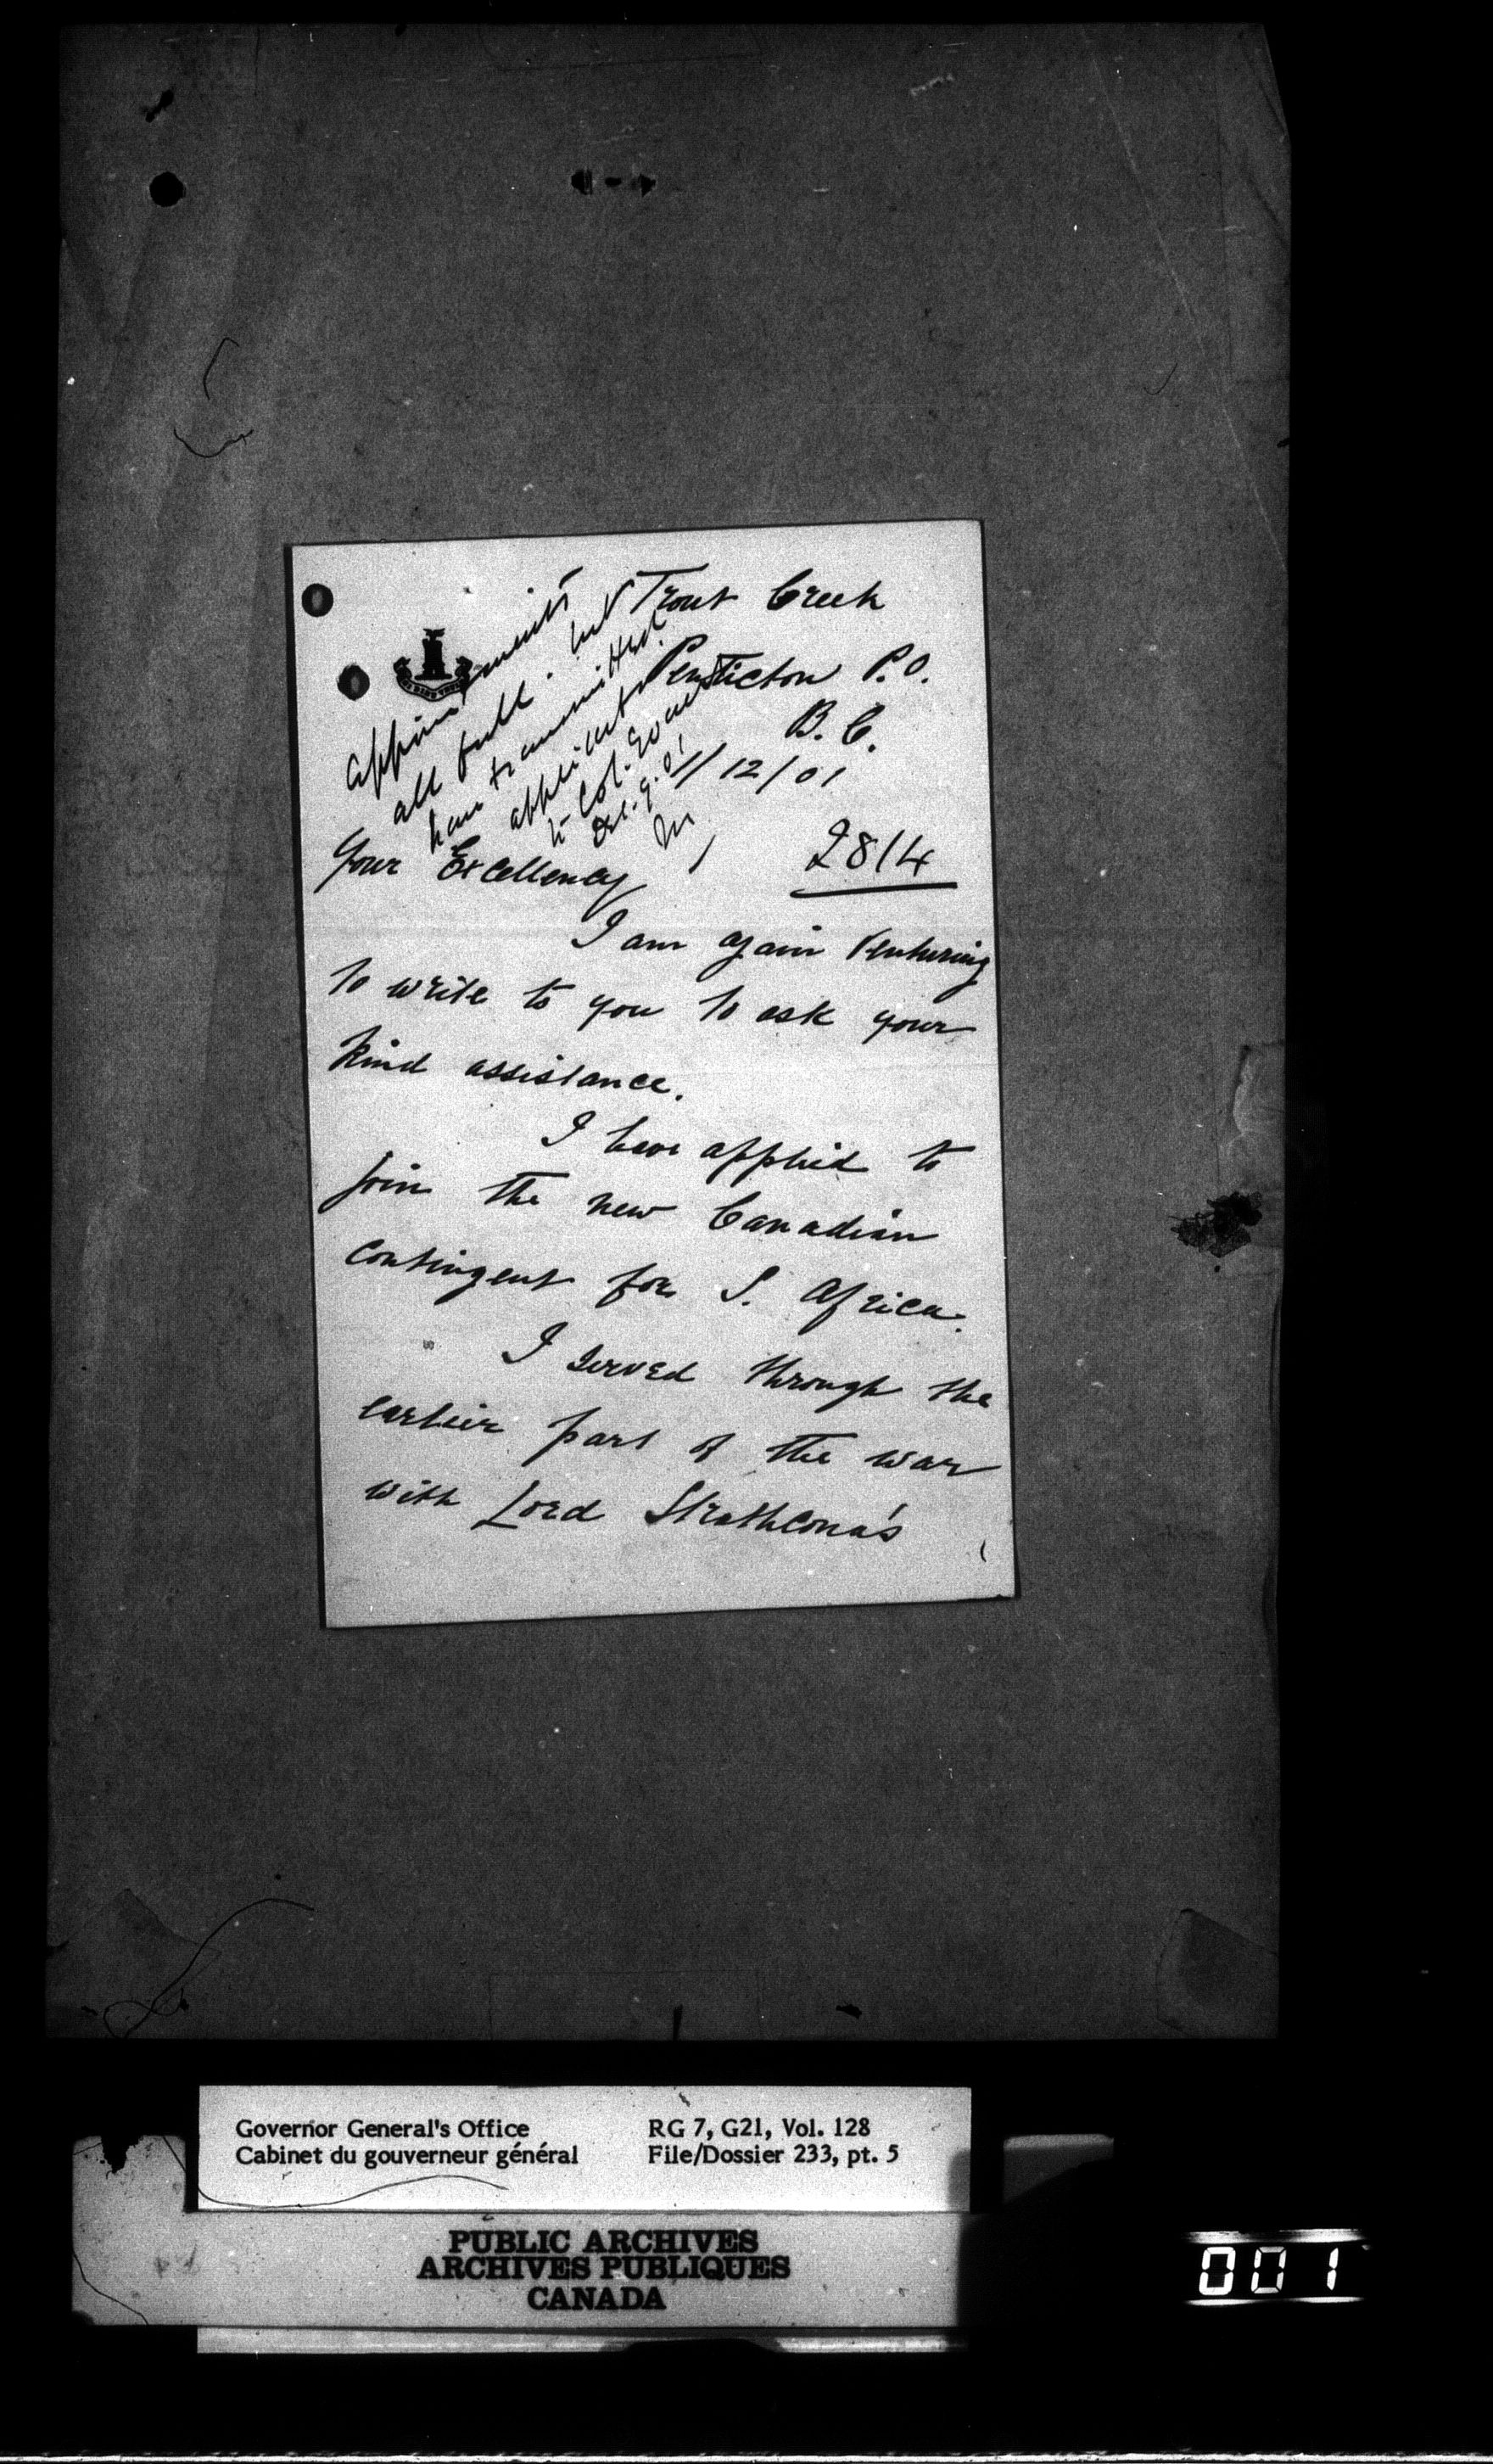 Trout Creek
Penticton P.O.
B.C.
1/12/01
Appointments
all full. but
have transmitted
application
to Col. Evans
Dec. 9. 01
2814
Your Excellency,
I am again venturing
to write to you to ask your
kind assistance.
I have applied to
join the new Canadian
contingent for S. Africa.
I served through the
earlier part of the war
with Lord Strathcona's
Governor General's Office
Cabinet du gouverneur général
RG 7, G21, Vol. 128
File/Dossier 233, pt. 5
PUBLIC ARCHIVES
ARCHIVES PUBLIQUES
CANADA
001